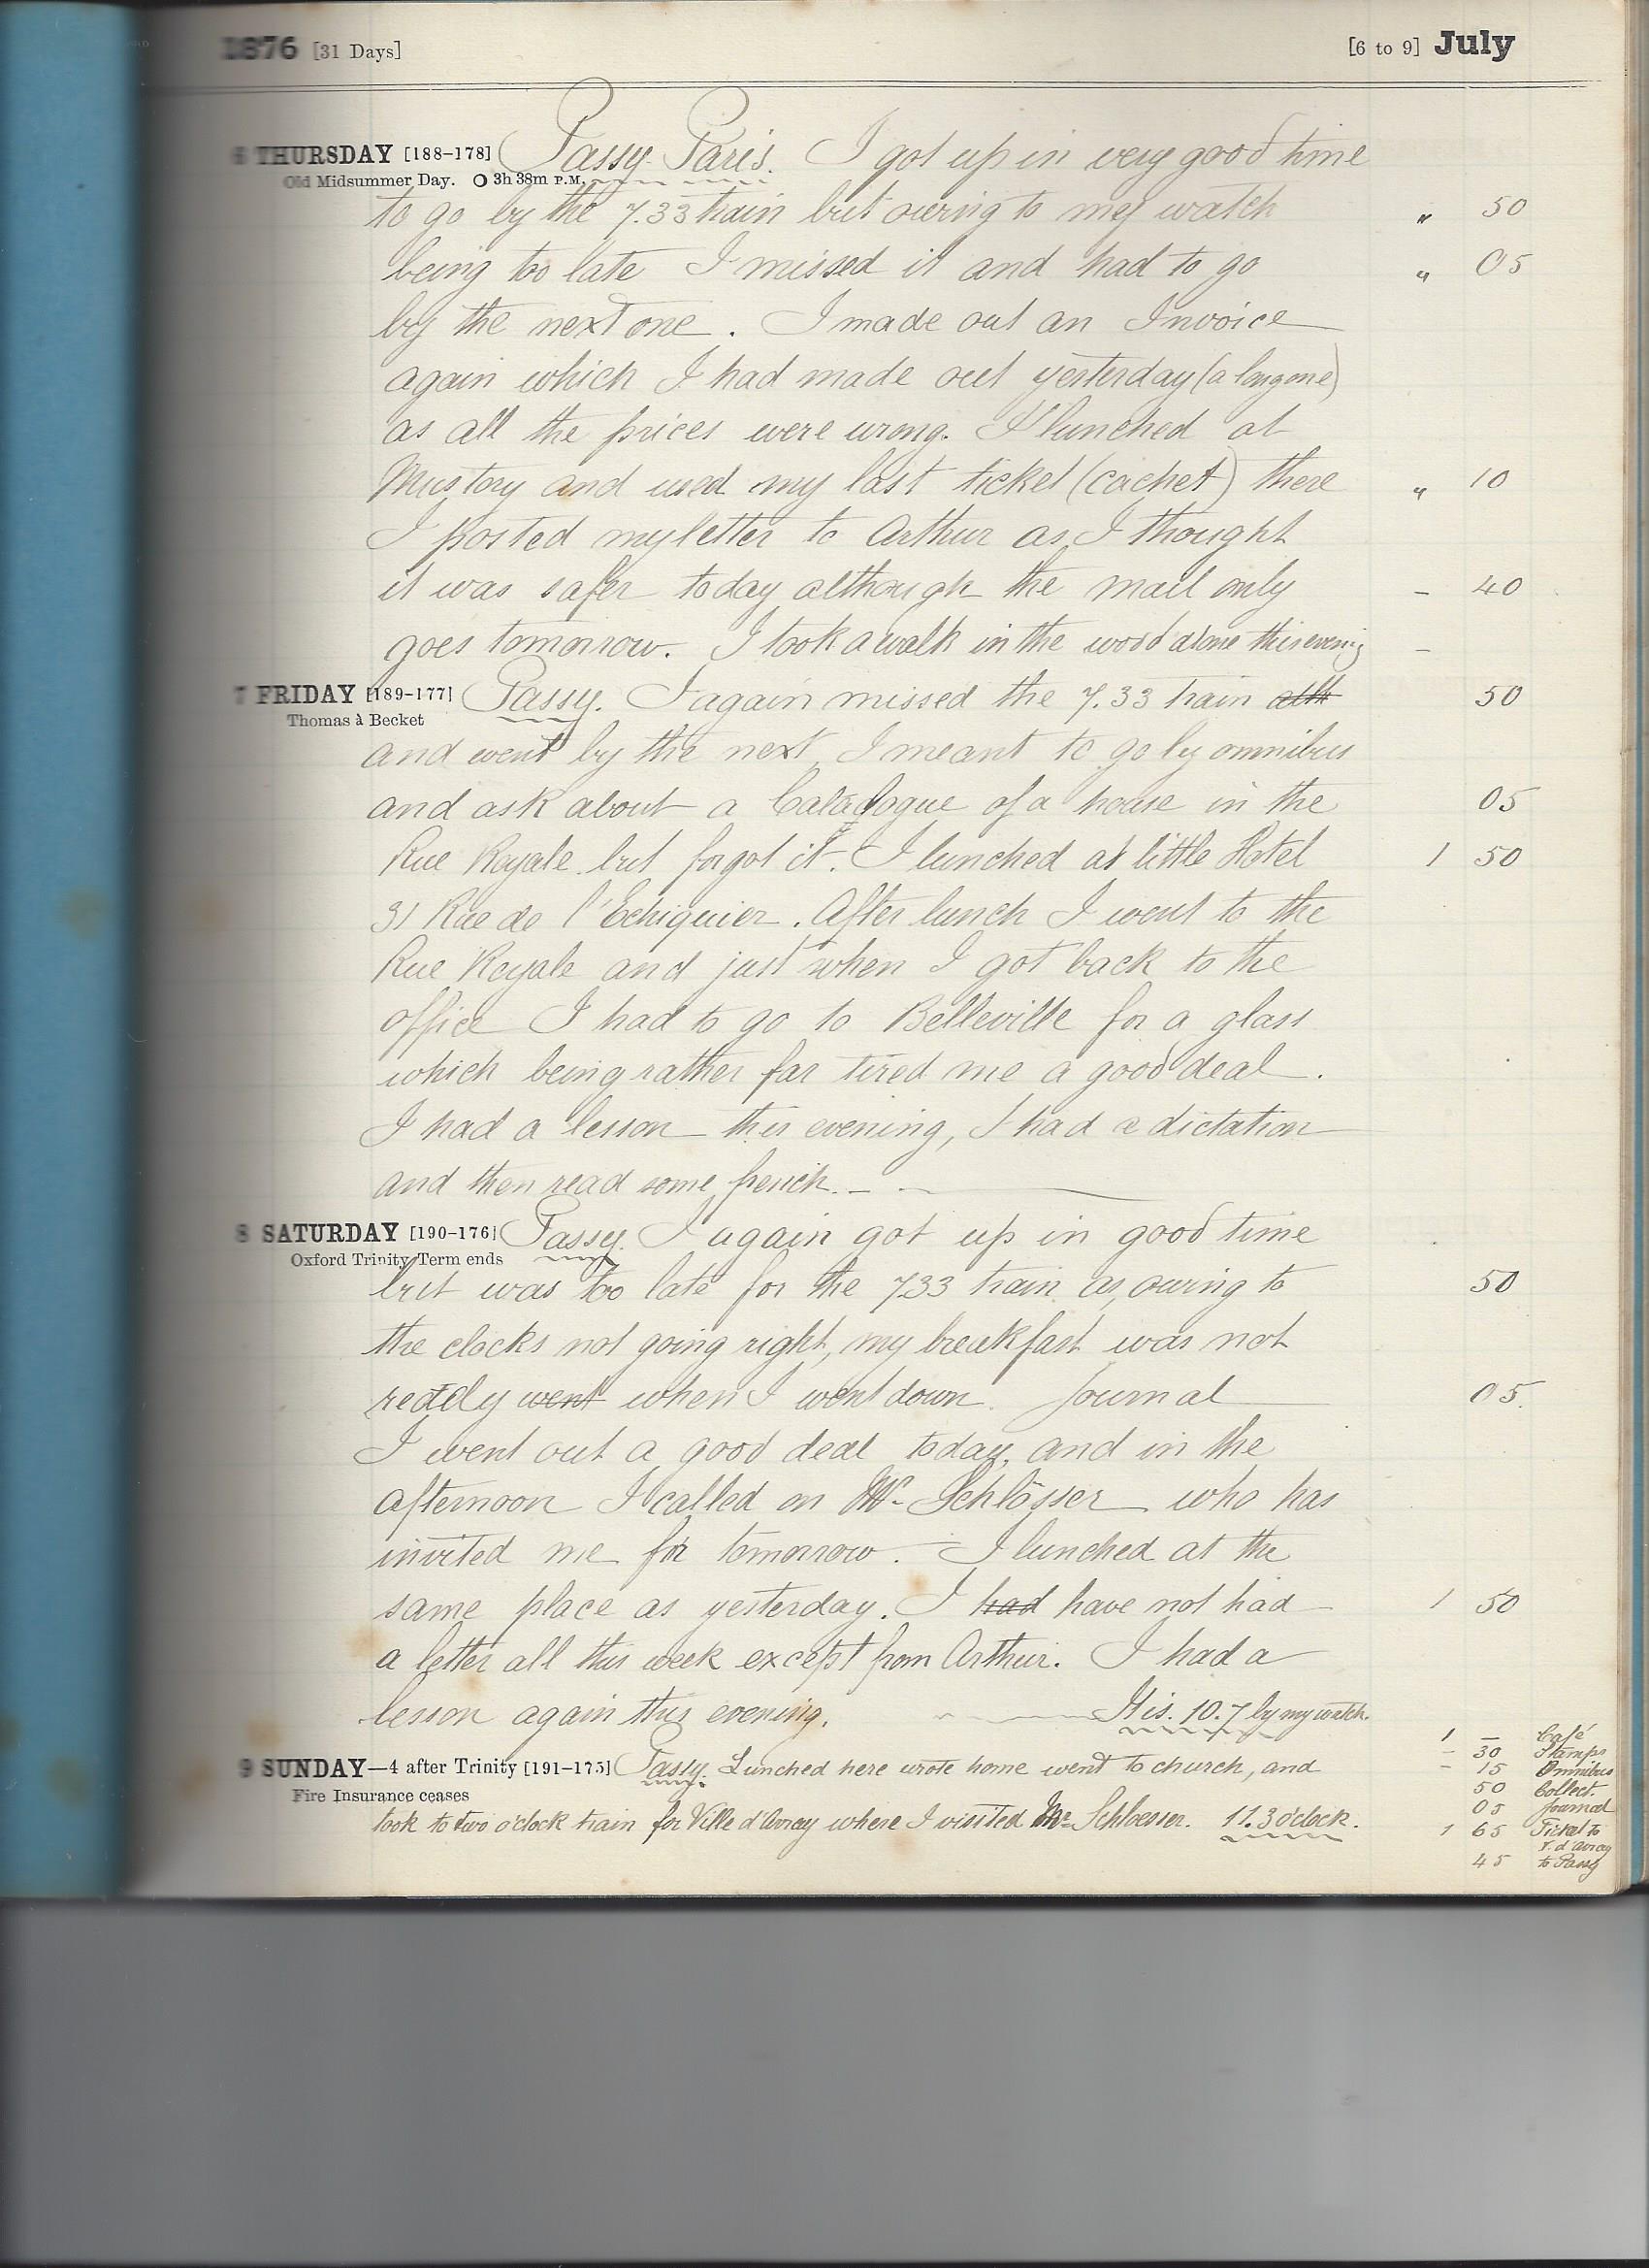 1876 [31 Days] [6 to 9] July
6 THURSDAY [188-178] Passy-Paris. I got up in very good time
Old Midsummer Day. O 3h 38m P.M.
to go by the 7.33 train but owing to my watch " 50
being too late I missed it and had to go " 05
by the next one. I made out an Invoice
again which I had made out yesterday (a long one)
as all the prices were wrong. I lunched at
and used my last ticket (cachet) there " 10
I posted my letter to Arthur as I thought
it was safer today although the mail only – 40
goes tomorrow. I took a walk in the wood alone this evening –
7 FRIDAY [189-177] Passy. I again missed the 7.33 train 50
Thomas à Becket
and went by the next, I meant to go by omnibus
and ask about a Catalogue of a house in the 05
Rue Royale but forgot it. I lunched at little Hotel 1 50
31 Rue de l'Echiquier. After lunch I went to the
Rue Royale and just when I got back to the
office I had to go to Belleville for a glass
which being rather far tired me a good deal.
I had a lesson this evening, I had a dictation
and then read some french. –
8 SATURDAY [190-176] Passy. I again got up in good time
Oxford Trinity Term ends
but was too late for the 733 train as, owing to 50
the clocks not going right, my breakfast was not
ready went when I went down. Journal 05.
I went out a good deal today, and in the
afternoon I called on Mr. Schlösser who has
invited me for tomorrow. – I lunched at the
same place as yesterday. I had have not had 1 50
a letter all this week except from Arthur. I had a
lesson again this evening. It is. 10.7 by my watch.
9 SUNDAY—4 after Trinity [191-175] Passy. Lunched here wrote home went to church, and
Fire Insurance ceases
took to two o'clock train for Ville d'Avray where I visited Mr. Schloesser. 11.3 o'clock.
1 – Café
– 30 Stamps
– 15 Omnibus
50 Collect.
05 Journal
1 65 Ticket to
V. d'Avray
45 to Passy